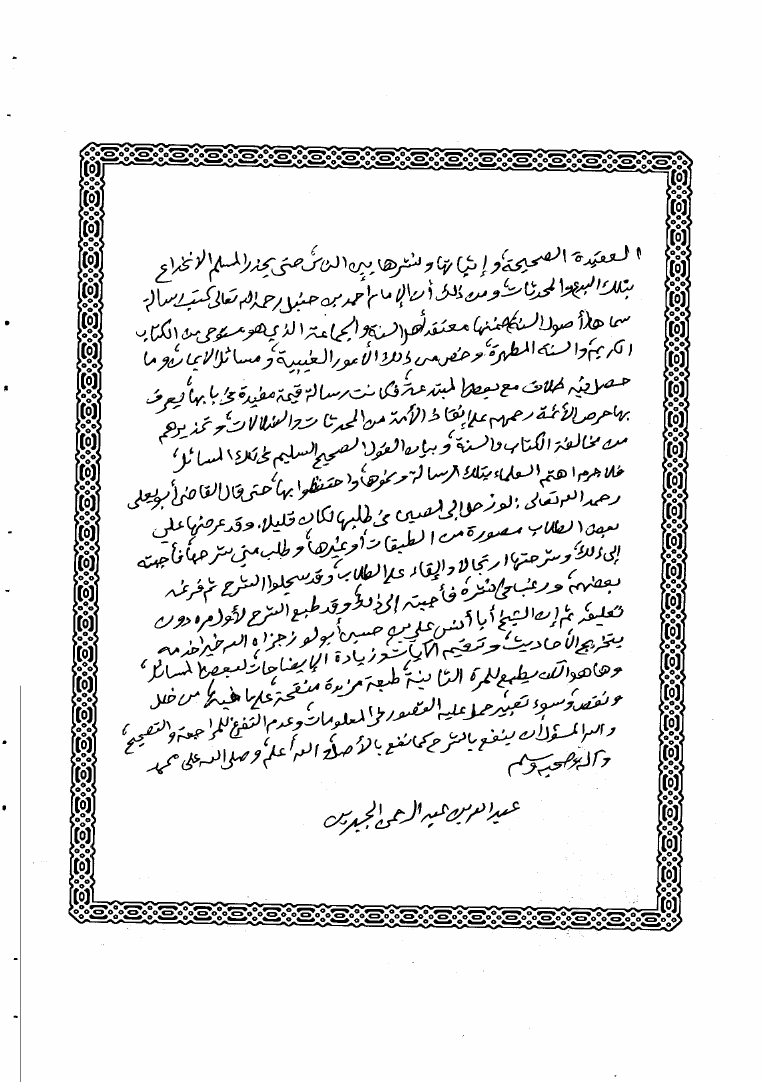 العقيدة الصحيحة وإثباتها ونشرها بين الناس حتى يحذر المسلم الانخداع
بتلك البدع والمحدثات ومن ذلك أن الإمام أحمد بن حنبل رحمه الله تعالى كتب رسالة
سماها أصول السنة ضمنها معتقد أهل السنة والجماعة الذي هو مستوحى من الكتاب
الكريم والسنة المطهرة، وخص من ذلك الأمور الغيبية، ومسائل الإيمان، وما
حصل فيه خلاف مع بعض المبتدعة فكانت رسالة قيمة مفيدة في بابها، يعرف
بها حرص الأئمة رحمهم على إنقاذ الأمة من المحدثات والضلالات، وتحذيرهم
من مخالفة الكتاب والسنة، وبيان القول الصحيح السليم في تلك المسائل،
فلا جرم اهتم العلماء بتلك الرسالة ونحوها، واحتفظوا بها، حتى قال القاضي أبو يعلى
رحمه الله تعالى: لو رحل إلى الصين في طلبها لكان قليلا، وقد عرضها علي
بعض الطلاب مصورة من الطبقات أو غيرها، وطلب مني شرحها فأجبته
إلى ذلك، وشرحتها ارتجالا والإلقاء على الطلاب، وقد سجلوا الشرح ثم فرغه
بعضهم، ورغب في نشره فأجبته إلى ذلك، وقد طبع الشرح لأول مرة دون
تعليق، ثم إن الشيخ أبا أنس علي بن حسين أبو لوز جزاه الله خيرا خدمه
بتخريج الأحاديث، وترقيم الآيات، وزيادة الإيضاحات لبعض المسائل،
وها هو الآن يطبع للمرة الثانية طبعة مزيدة منقحة على ما فيها من خلل
ونقص، وسوء تعبير حمل عليه القصور في المعلومات، وعدم التفرغ للمراجعة والتصحيح،
والله المسؤول أن ينفع بالشرح كما نفع بالأصل، والله أعلم، وصلى الله على محمد
وآله وصحبه وسلم
عبد الله بن عبد الرحمن الجبرين